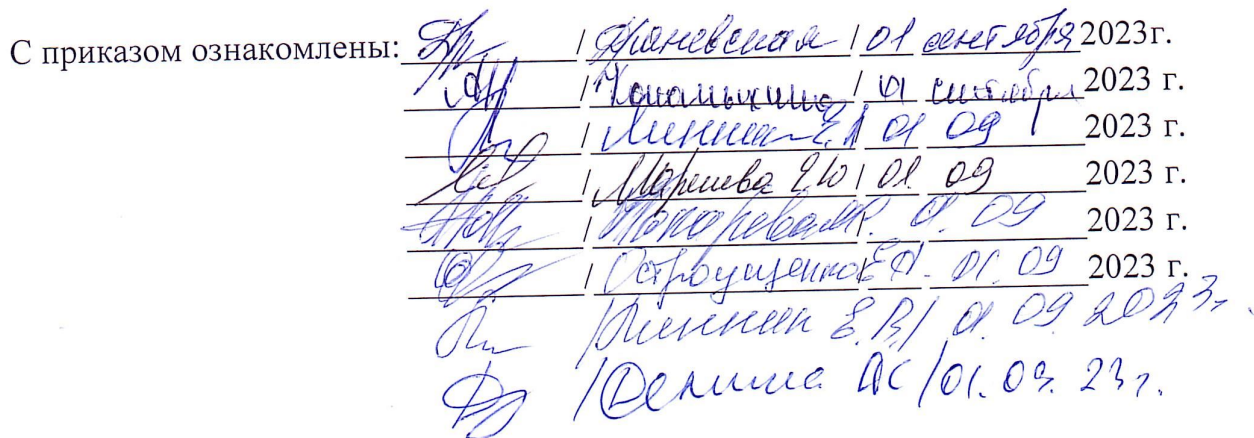 С приказом ознакомлены: / Краневская / 01 сентября 2023г.
/ / 01 сентября 2023 г.
/ Линник Е.А 01 09 2023 г.
/ Марешева Е Ю / 01 09 2023 г.
/ Токарева М.Р. 01. 09 2023 г.
/ Остроущенко Е А. 01. 09 2023 г.
/ Линник Е.В / 01 09 2023г.
/ Демина АС / 01. 09. 23г.